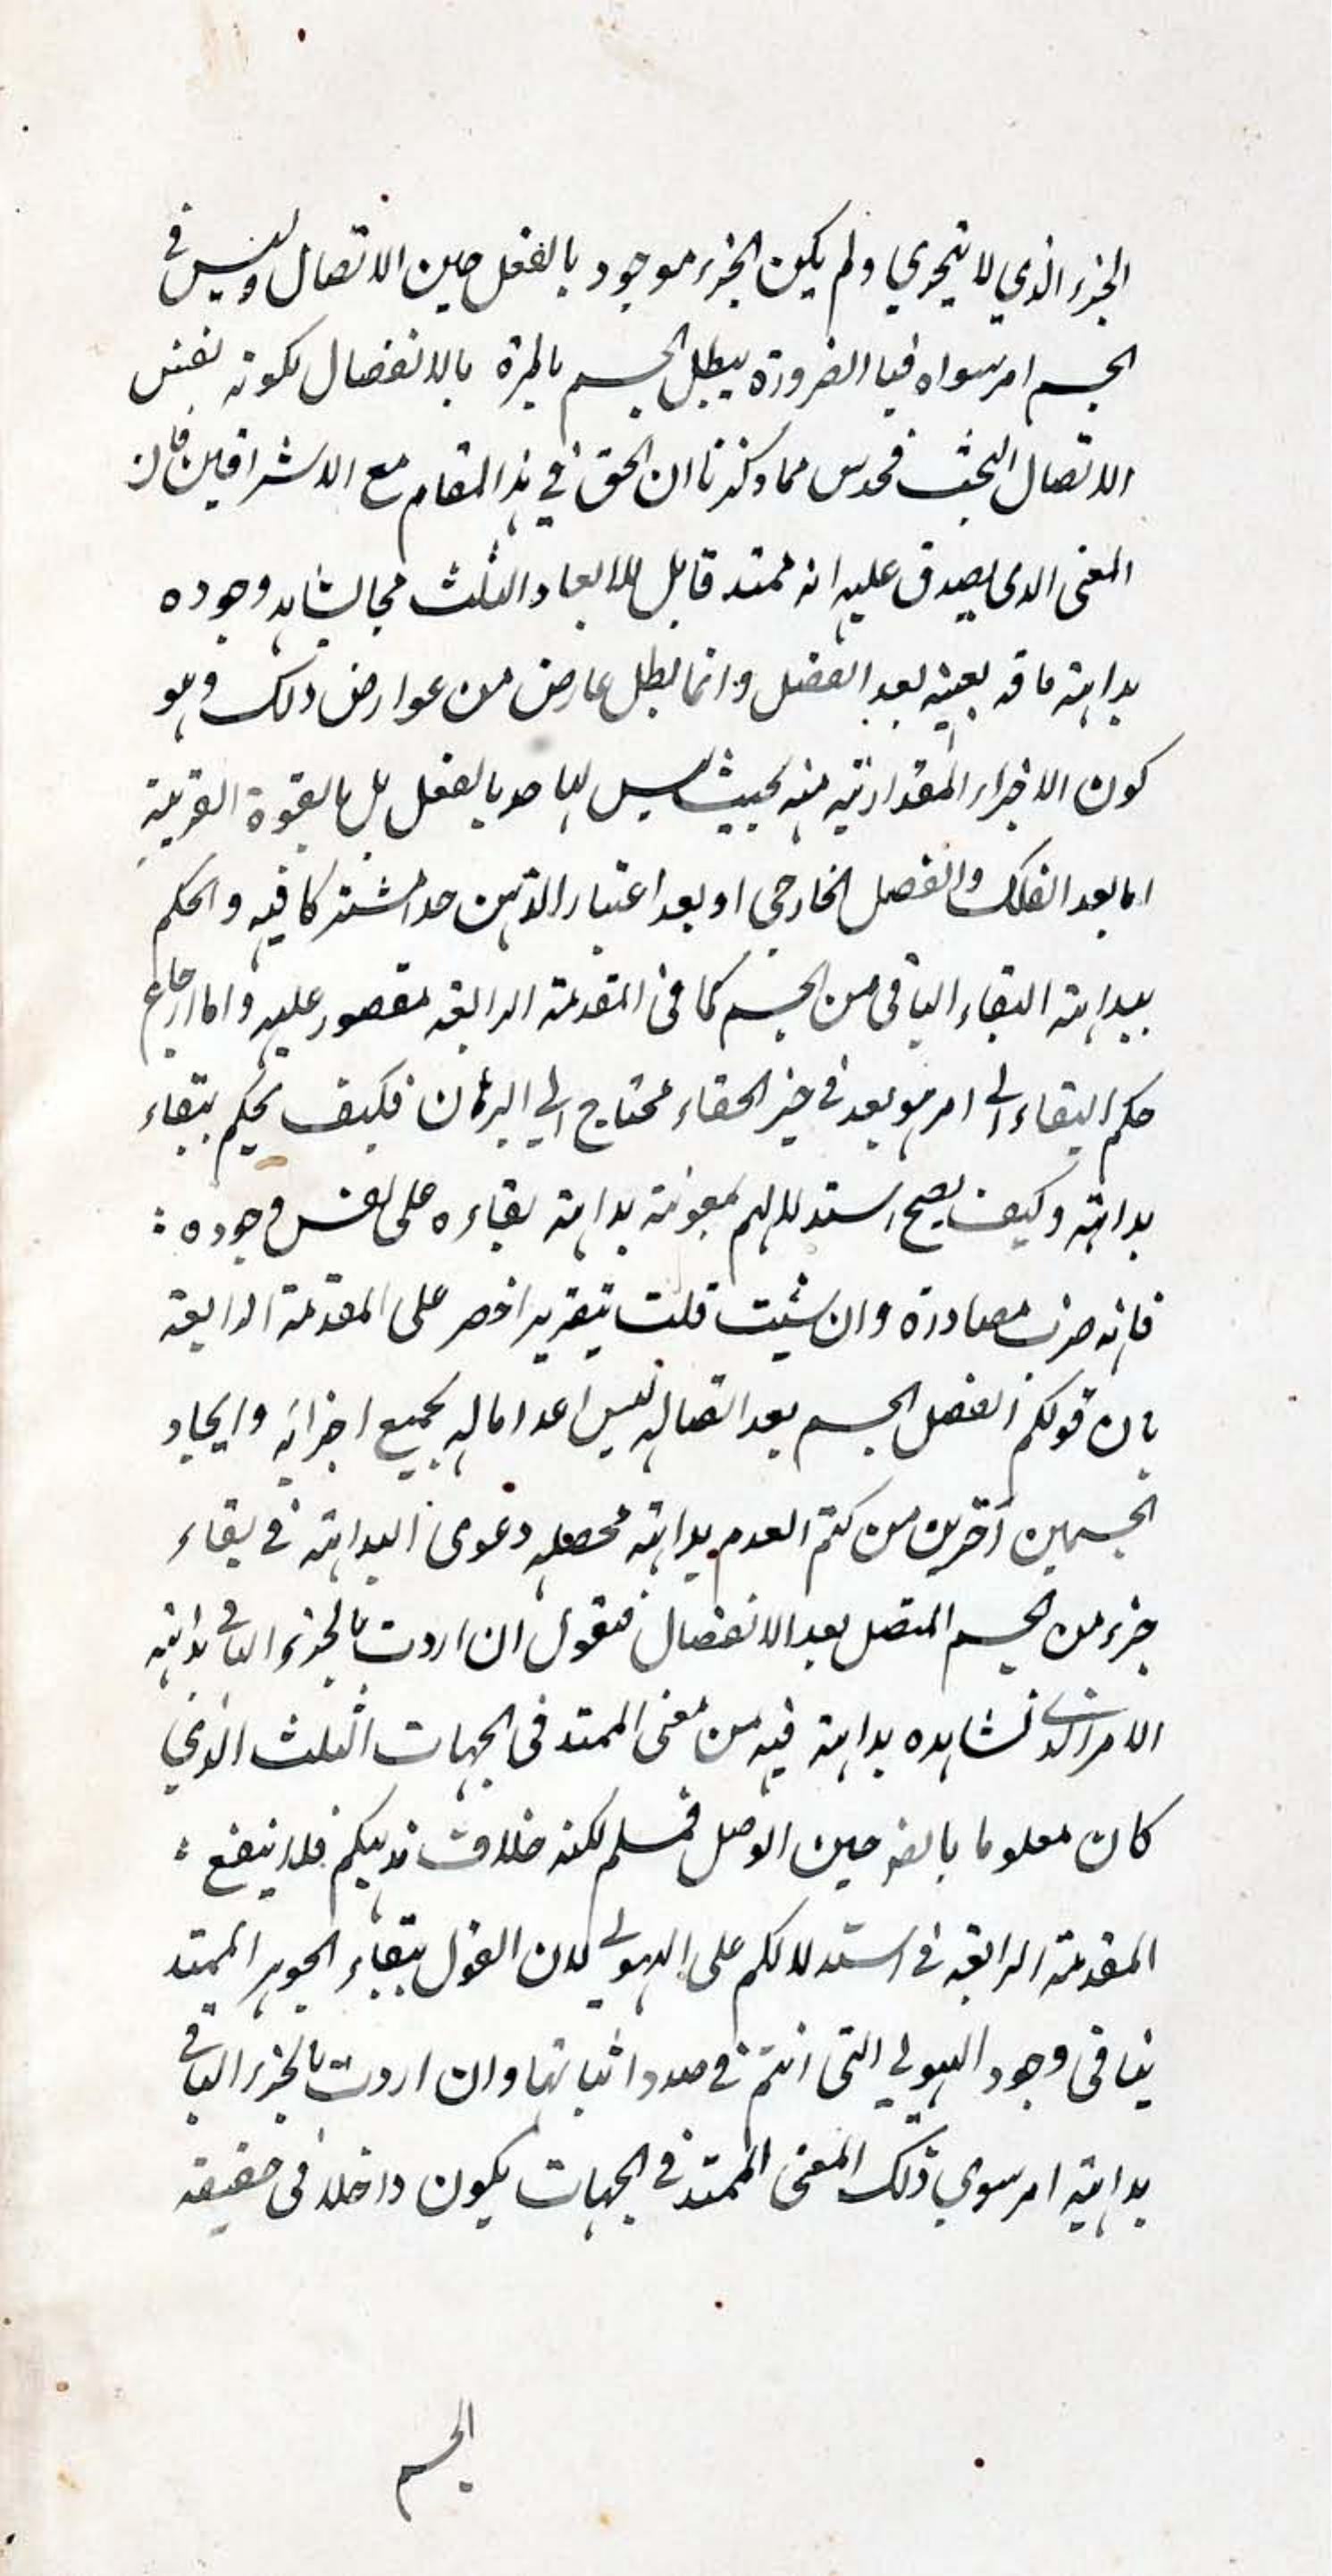 الجزء الذي لا يتجزي ولم يكن الجزء موجود بالفعل حين الاتصال وليس في
الجسم امر سواه فبالضرورة يبطل الجسم بالمرة بالانفصال لكونه نفس
الاتصال البحث فحدس مما ذكرنا ان الحق في هذا المقام مع الاشراقين فان
المعنى الذى يصدق عليه انه ممتد قابل للابعاد الثلث مما يشاهد وجوده
بداهته باقه بعينه بعد الفصل وانما بطل عارض من عوارض ذلك وهو
كون الاجزاء المقدارية منه بحيث ليس لها حد بالفعل بل بالقوة القريبة
اما بعد الفك والفصل الخارجي او بعد اعتبار الذهن حدا مشتركا فيه والحكم
ببداهته البقاء الباقى من الجسم كما فى المقدمة الرابعة مقصور عليه واما ارجاع
حكم البقاء الى امر هو بعد في حيز الخفاء محتاج الي البرهان فكيف يحكم ببقاء
بداهته وكيف يصح استدلالهم بمعونة بداهته بقاءه على نفس وجوده :
فانه صرف مصادرة وان شئت قلت بتقرير اخصر على المقدمة الرابعة
بان قولكم انفصل الجسم بعد اتصاله ليس اعداما له بجميع اجزائه وايجاد
الجسمين آخرين من كتم العدم بداهته محصله دعوى البداهته في بقاء
جزء من الجسم المتصل بعد الانفصال فنقول ان اردت بالجزء الباقي بداهته
الامر الذي نشاهده بداهته فيه من معنى الممتد فى الجهات الثلث الذي
كان معلوما بالضر حين الوصل فمسلم لكنه خلاف مذهبكم فلا ينفع :
المقدمة الرابعة في استدلالكم على الهيولي لان القول ببقاء الجوهر الممتد
ينافى وجود الهيولي التى انتم في صدد اثباتها وان اردت بالجزء الباقي
بداهته امر سوي ذلك المعنى الممتد في الجهات يكون داخلا فى حقيقه
الجسم